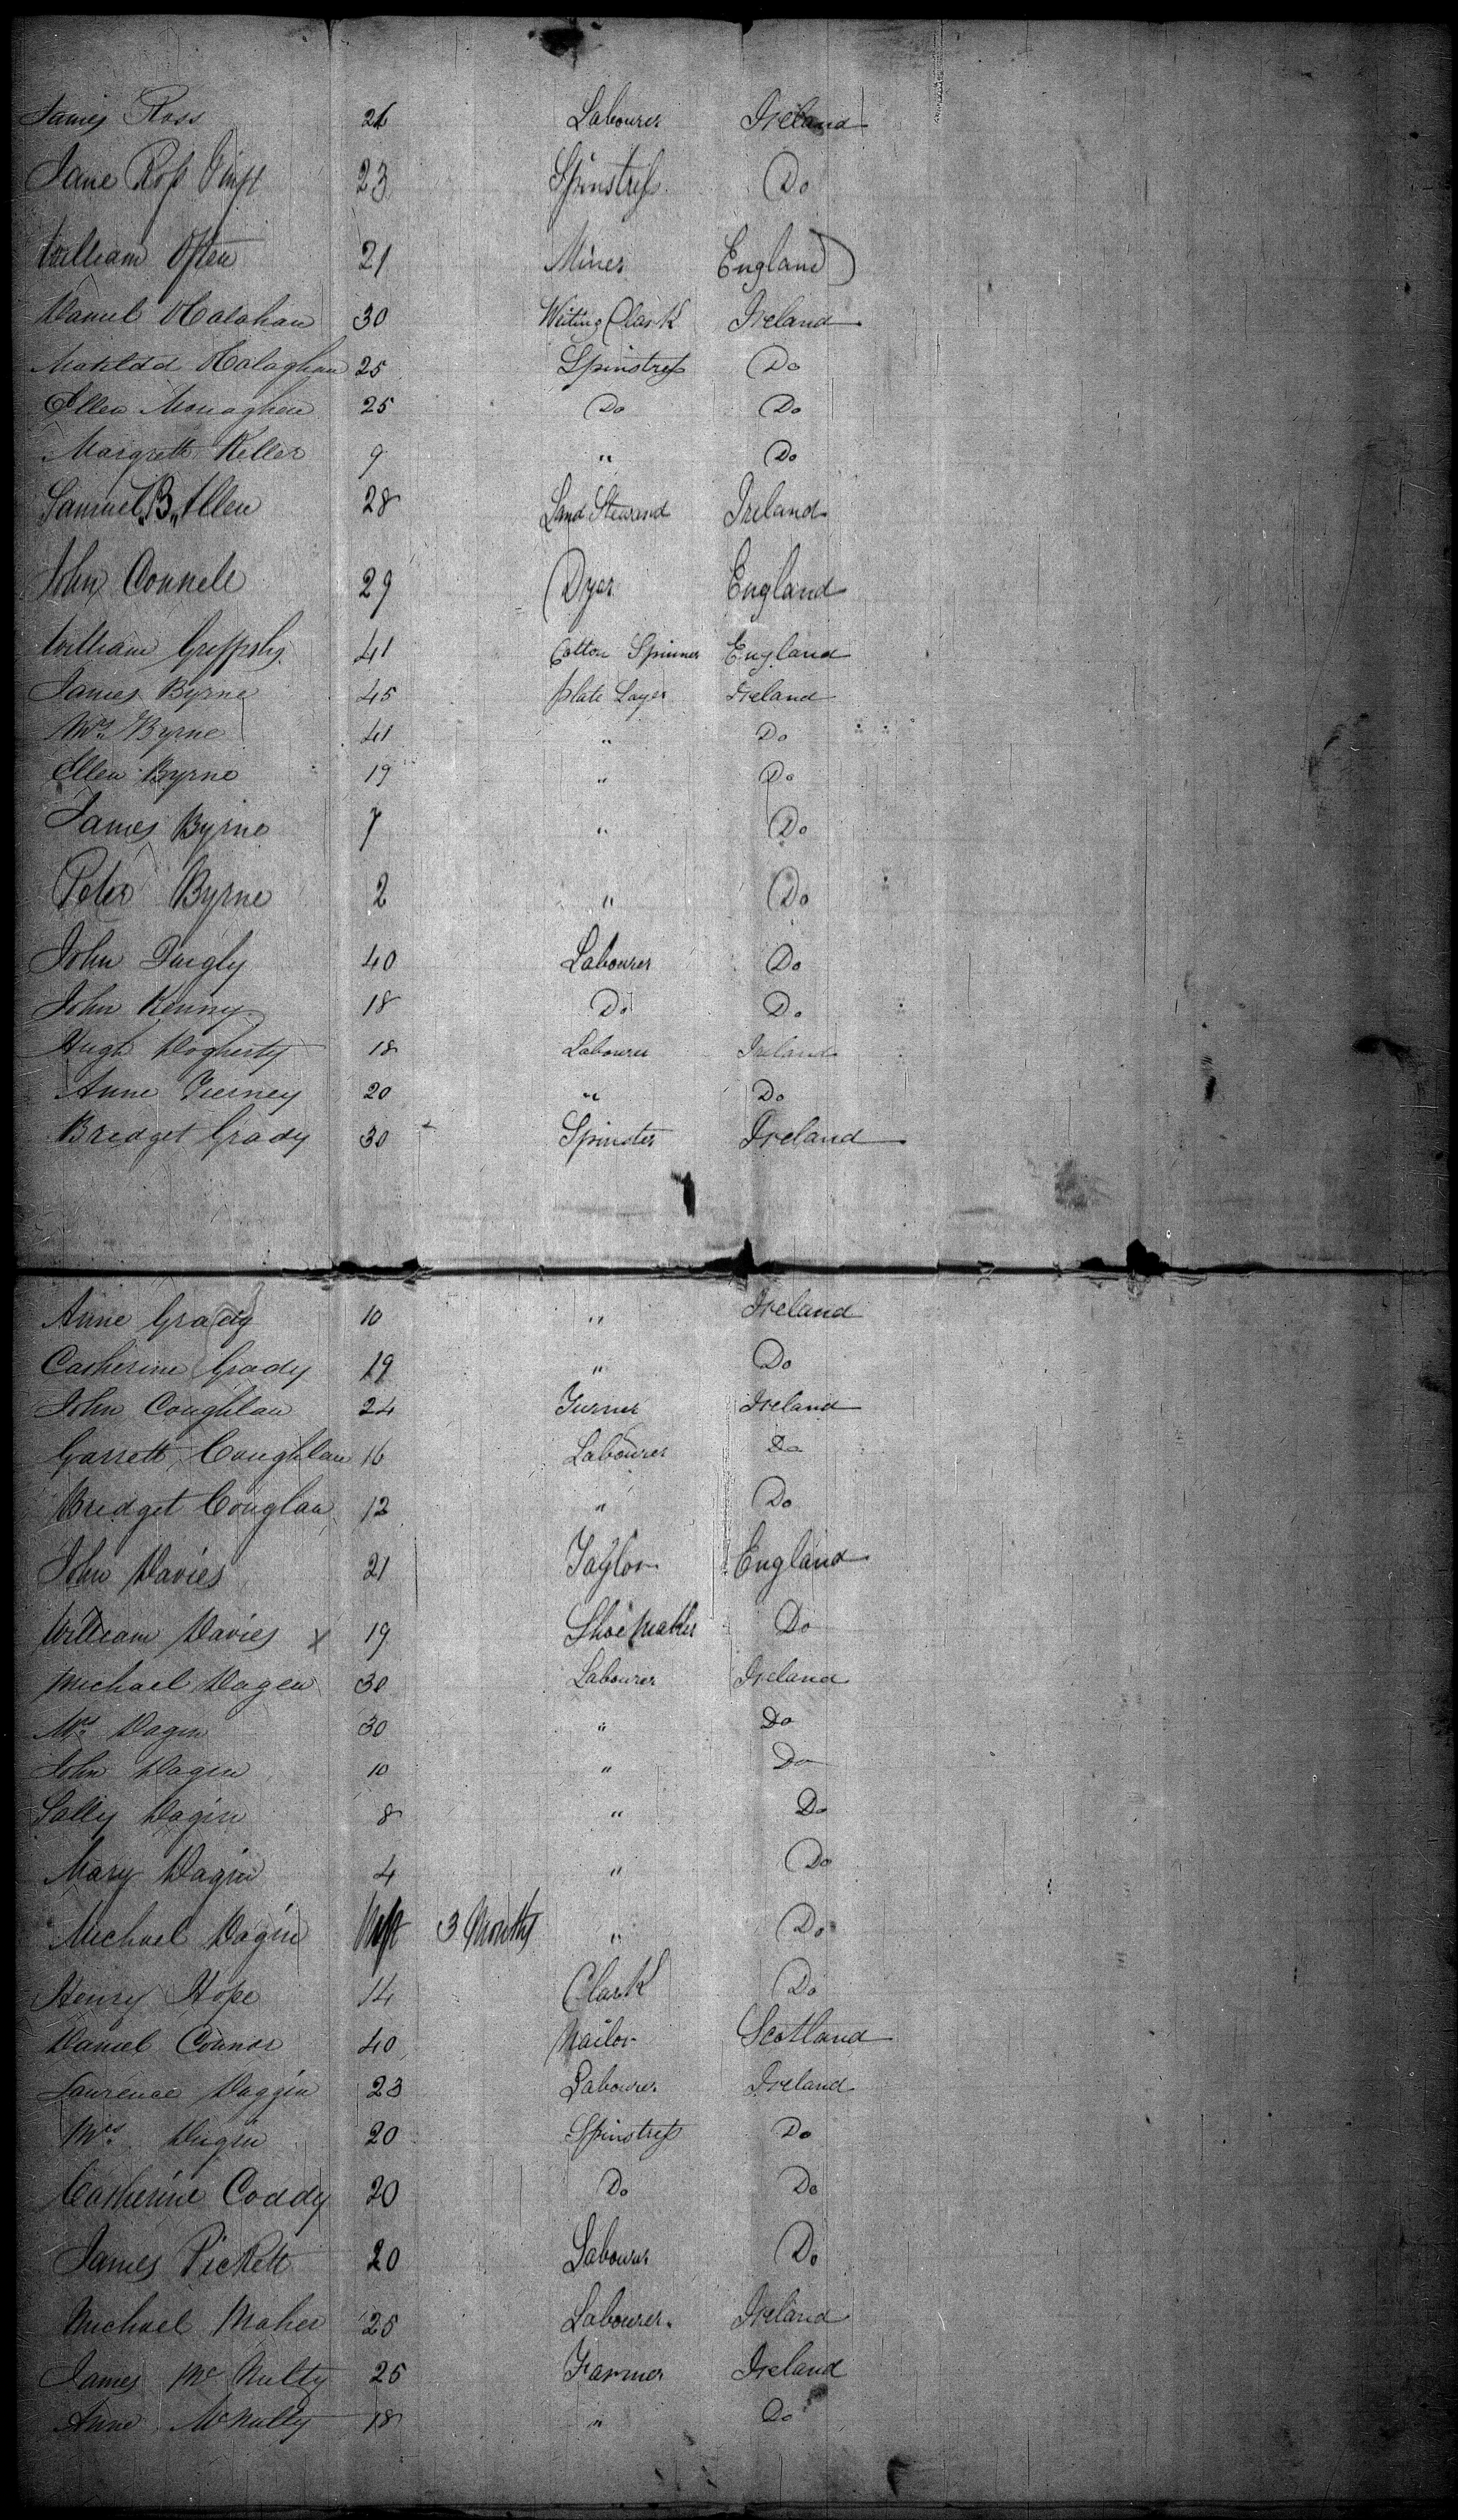 James Ross 26 Labourer Ireland
Jane Ross 23 Spinstress Do
William Often 21 Miner England
Daniel OCalahan 30 Writing Clark Ireland
Matildd OCalaghan 25 Spinstress Do
Ellen Monaghen 25 Do Do
Margrett Keller 9 " Do
Samuel „B„ Allen 28 Land Steward Ireland
John Connell 29 Dyer England
William 41 Cotton Spinner England
James Byrne 45 plate Layer Ireland
Mrs Byrne 41 " Do
Ellen Byrne 19 " Do
James Byrne 7 " Do
Peter Byrne 2 " Do
John 40 Labourer Do
John Kenny 18 Do Do
Hugh Dogherty 18 Labourer Ireland
Anne Tierney 20 " Do
Bredget Grady 30 Spinster Ireland
Anne Grady 10 " Ireland
Catherine Grady 19 " Do
John Coughlan 24 Turner Ireland
Garrett Coughlan 16 Labourer Do
Bredget Couglan 12 " Do
John Davies 21 Taylor England
William Davies x 19 Shoe Maker Do
Michael Dagen 30 Labourer Ireland
Mrs Dagin 30 " Do
John Dagin 10 " Do
Sally Dagin 8 " Do
Mary Dagin 4 " Do
Michael Dagin 3 Months " Do
Henry Hope 14 Clark Do
Daniel Connor 40 Nailor Scotland
Laurence Daggin 23 Labourer Ireland
Mrs Dugin 20 Spinstress Do
Catherine Coddy 20 Do Do
James Pickett 20 Labourer Do
Michael Maher 25 Labourer. Ireland
James Mc Nulty 25 Farmer Ireland
Anne McNulty 18 " Do